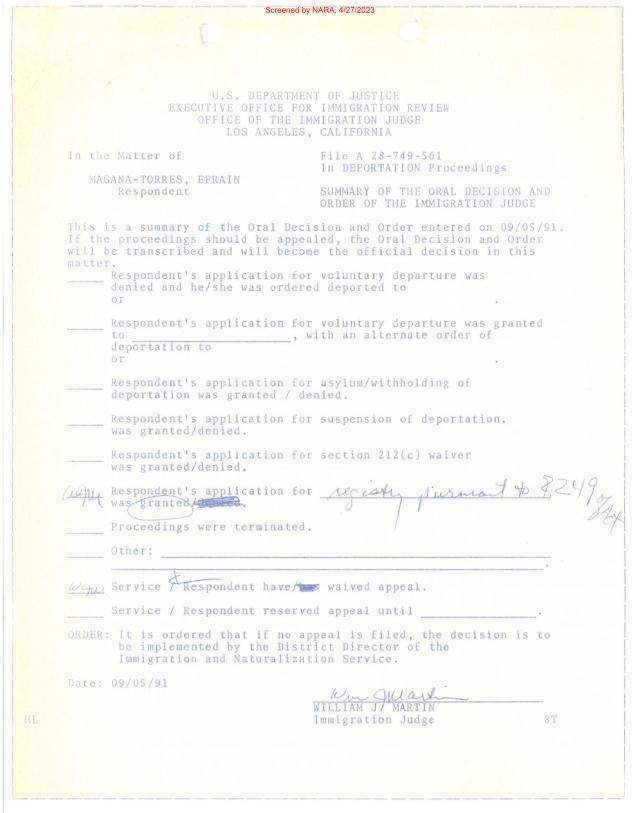 Screened by NARA, 4/27/2023
U.S. DEPARTMENT OF JUSTICE
EXECUTIVE OFFICE FOR IMMIGRATION REVIEW
OFFICE OF THE IMMIGRATION JUDGE
LOS ANGELES, CALIFORNIA
In the Matter of
File A 28-749-561
In DEPORTATION Proceedings
MAGANA-TORRES, EFRAIN
Respondent
SUMMARY OF THE ORAL DECISION AND
ORDER OF THE IMMIGRATION JUDGE
This is a summary of the Oral Decision and Order entered on 09/05/91.
If the proceedings should be appealed, the Oral Decision and Order
will be transcribed and will become the official decision in this
matter.
_____ Respondent's application for voluntary departure was
denied and he/she was ordered deported to
or .
_____ Respondent's application for voluntary departure was granted
to ______________________, with an alternate order of
deportation to
or .
_____ Respondent's application for asylum/withholding of
deportation was granted / denied.
_____ Respondent's application for suspension of deportation.
was granted/denied.
_____ Respondent's application for section 212(c) waiver
was granted/denied.
Respondent's application for registry pursuant to § 249
was granted/
of Act
_____ Proceedings were terminated.
_____ Other: 
Service & Respondent have/ waived appeal.
_____ Service / Respondent reserved appeal until ________________.
ORDER: It is ordered that if no appeal is filed, the decision is to
be implemented by the District Director of the
Immigration and Naturalization Service.
Date: 09/05/91
Wm J Martin
WILLIAM J. MARTIN
Immigration Judge
HL
8T